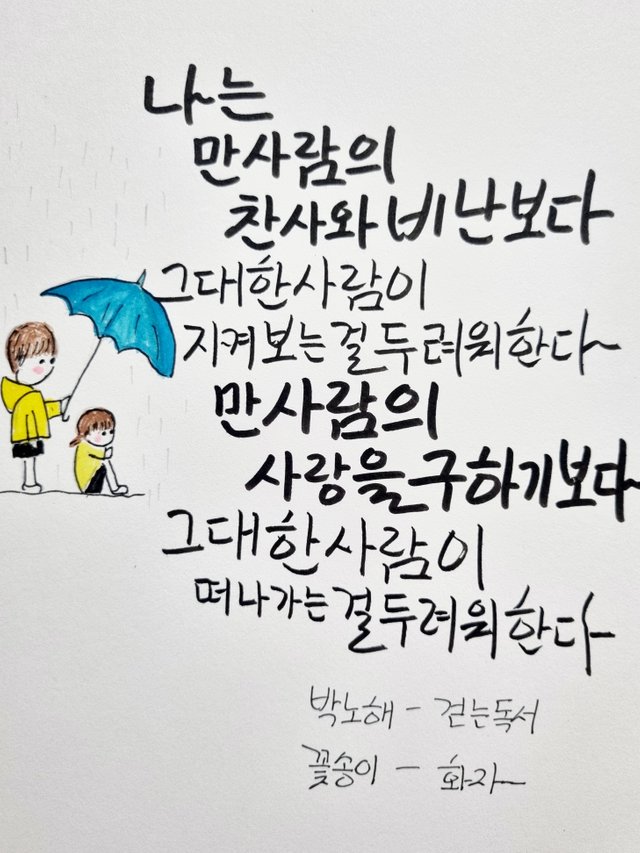 나는
만사람의
찬사와 비난보다
그대 한사람이
지켜보는 걸 두려워한다~
만사람의
사랑을 구하기보다~
그대 한사람이
떠나가는 걸 두려워한다~
박노해 - 걷는독서
꽃송이 - 화자~